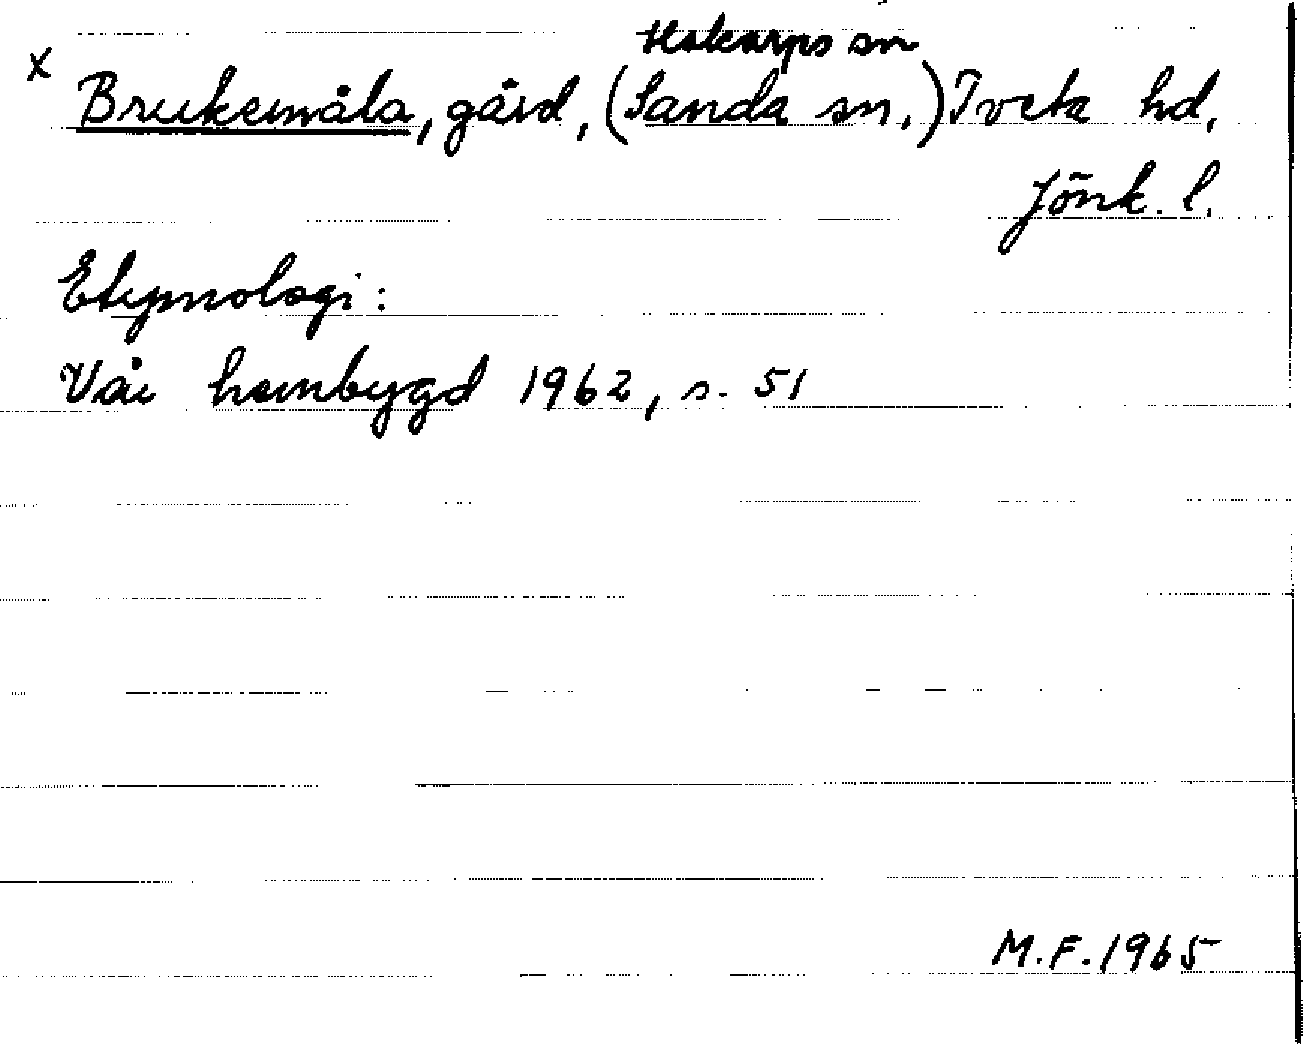 Hakarps sn
x Brukemåla, gård, (Sanda sn.) Tveta hd,
Jönk. l.
Etymologi:
Vår hembygd 1962, s. 51
M.F. 1965